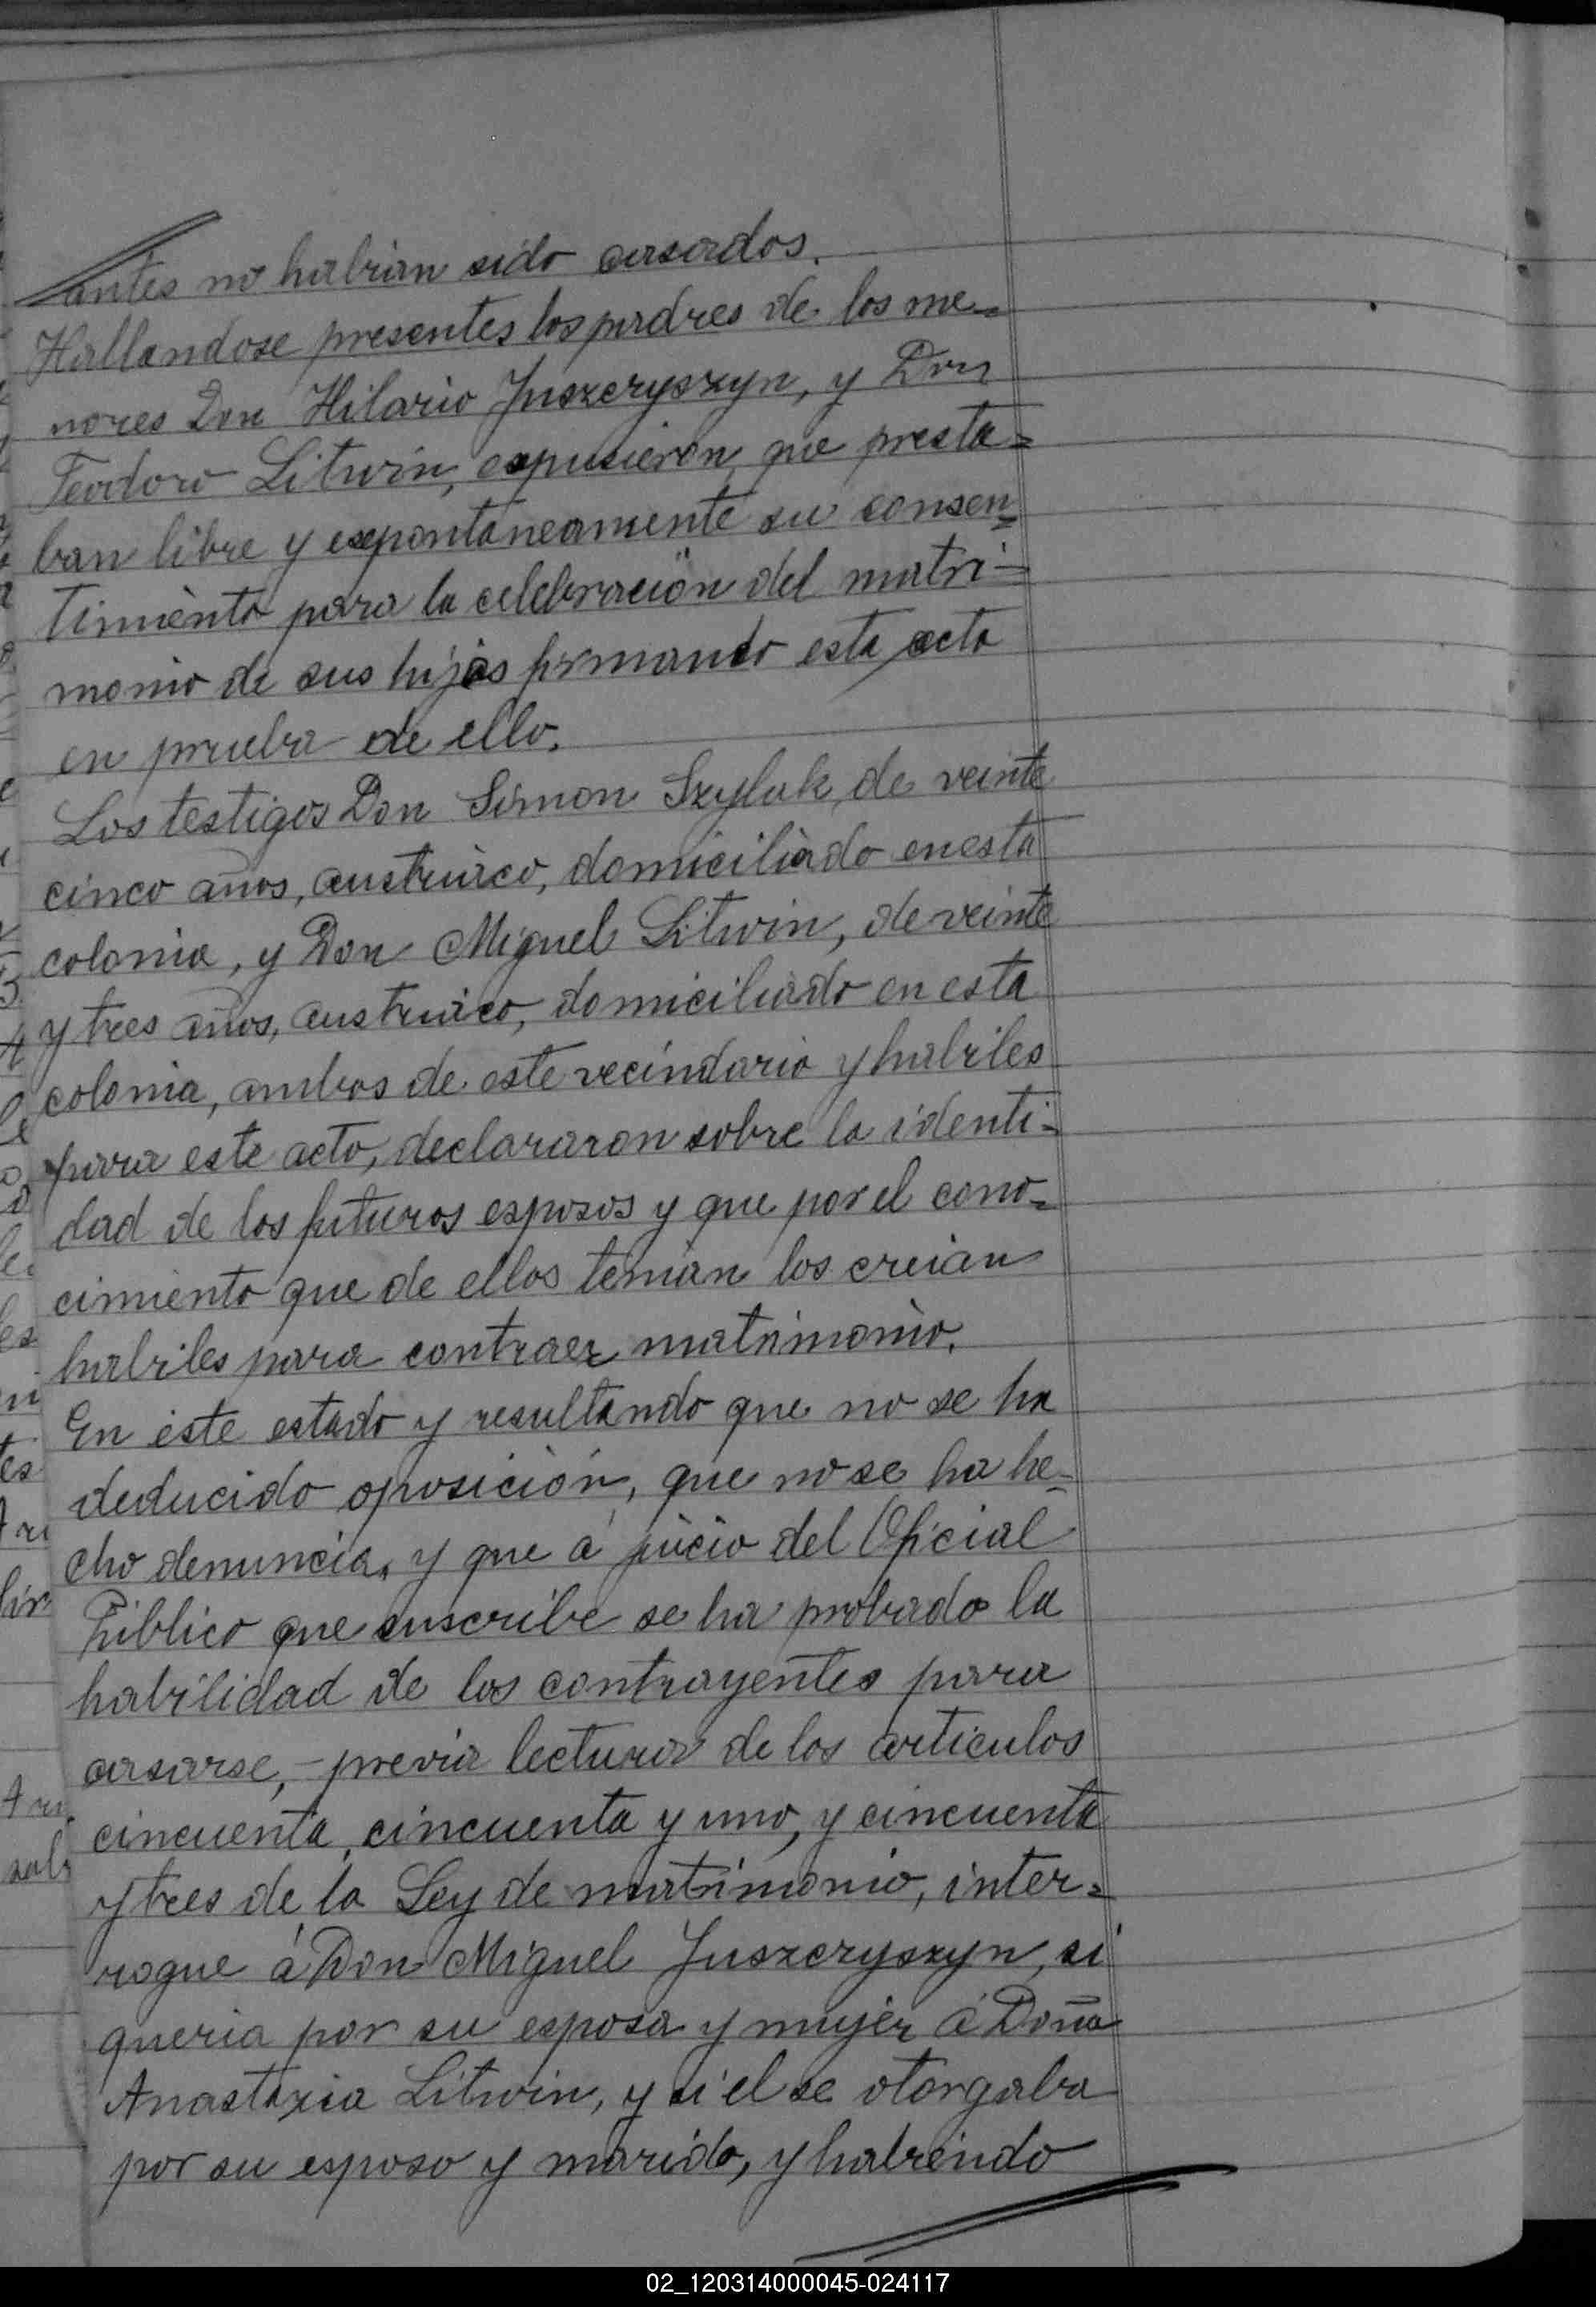 antes no habian sido casados.
Hallandose presentes los padres de los me-
nores Don Hilario Juszczyszyn, y Don
Teodoro Litwin, expusieron, que presta=
ban libre y espontaneamente su consen=
timiento para la celebración del matri-
monio de sus hijos firmando esta acta
en prueba de ello.
Los testigos Don Simon Szyluk, de veinte
cinco años, austriaco, domiciliado en esta
colonia, y Don Miguel Litwin, de veinte
y tres años, austriaco, domiciliado en esta
colonia, ambos de este vecindario y habiles
para este acto, declararon sobre la identi-
dad de los futuros esposos y que por el cono=
cimiento que de ellos tenian los creian
habiles para contraer matrimonio.
En este estado y resultando que no se ha
deducido oposición, que no se ha he-
cho denuncia, y que á juicio del Oficial
Público que suscribe se ha probado la
habilidad de los contrayentes para
casarse, - previa lectura de los articulos
cincuenta, cincuenta y uno, y cincuenta
y tres de la Ley de matrimonio, inter=
rogue á Don Miguel Juszczyszyn, si
queria por su esposa y mujer á Doña
Anastaxia Litwin, y si el se otorgaba
por su esposo y marido, y habiendo
02_120314000045-024117